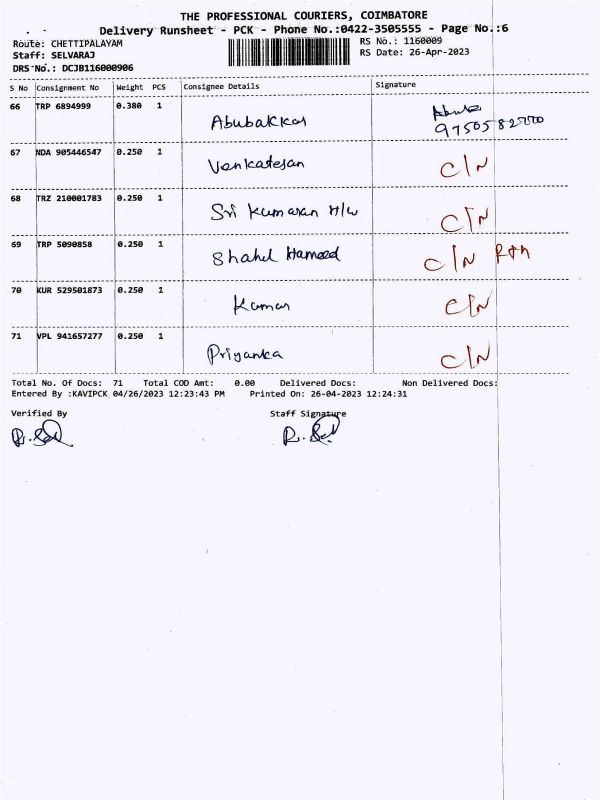 THE PROFESSIONAL COURIERS, COIMBATORE
Delivery Runsheet - PCK - Phone No.:0422-3505555 - Page No.:6
Route: CHETTIPALAYAM RS No.: 1160009
Staff: SELVARAJ RS Date: 26-Apr-2023
DRS No.: DCJB116000906
S No Consignment No Weight PCS Consignee Details Signature
66 TRP 6894999 0.380 1 Abubakkar
67 NDA 905446547 0.250 1 Venkatesan C/N
68 TRZ 210001783 0.250 1 Sri Kumaran H/W C/N
69 TRP 5090858 0.250 1 Shahul Hameed C/N
70 KUR 529501873 0.250 1 Kumar C/N
71 VPL 941657277 0.250 1 Priyanka C/N
Total No. Of Docs: 71 Total COD Amt: 0.00 Delivered Docs: Non Delivered Docs:
Entered By :KAVIPCK 04/26/2023 12:23:43 PM Printed On: 26-04-2023 12:24:31
Verified By Staff Signature